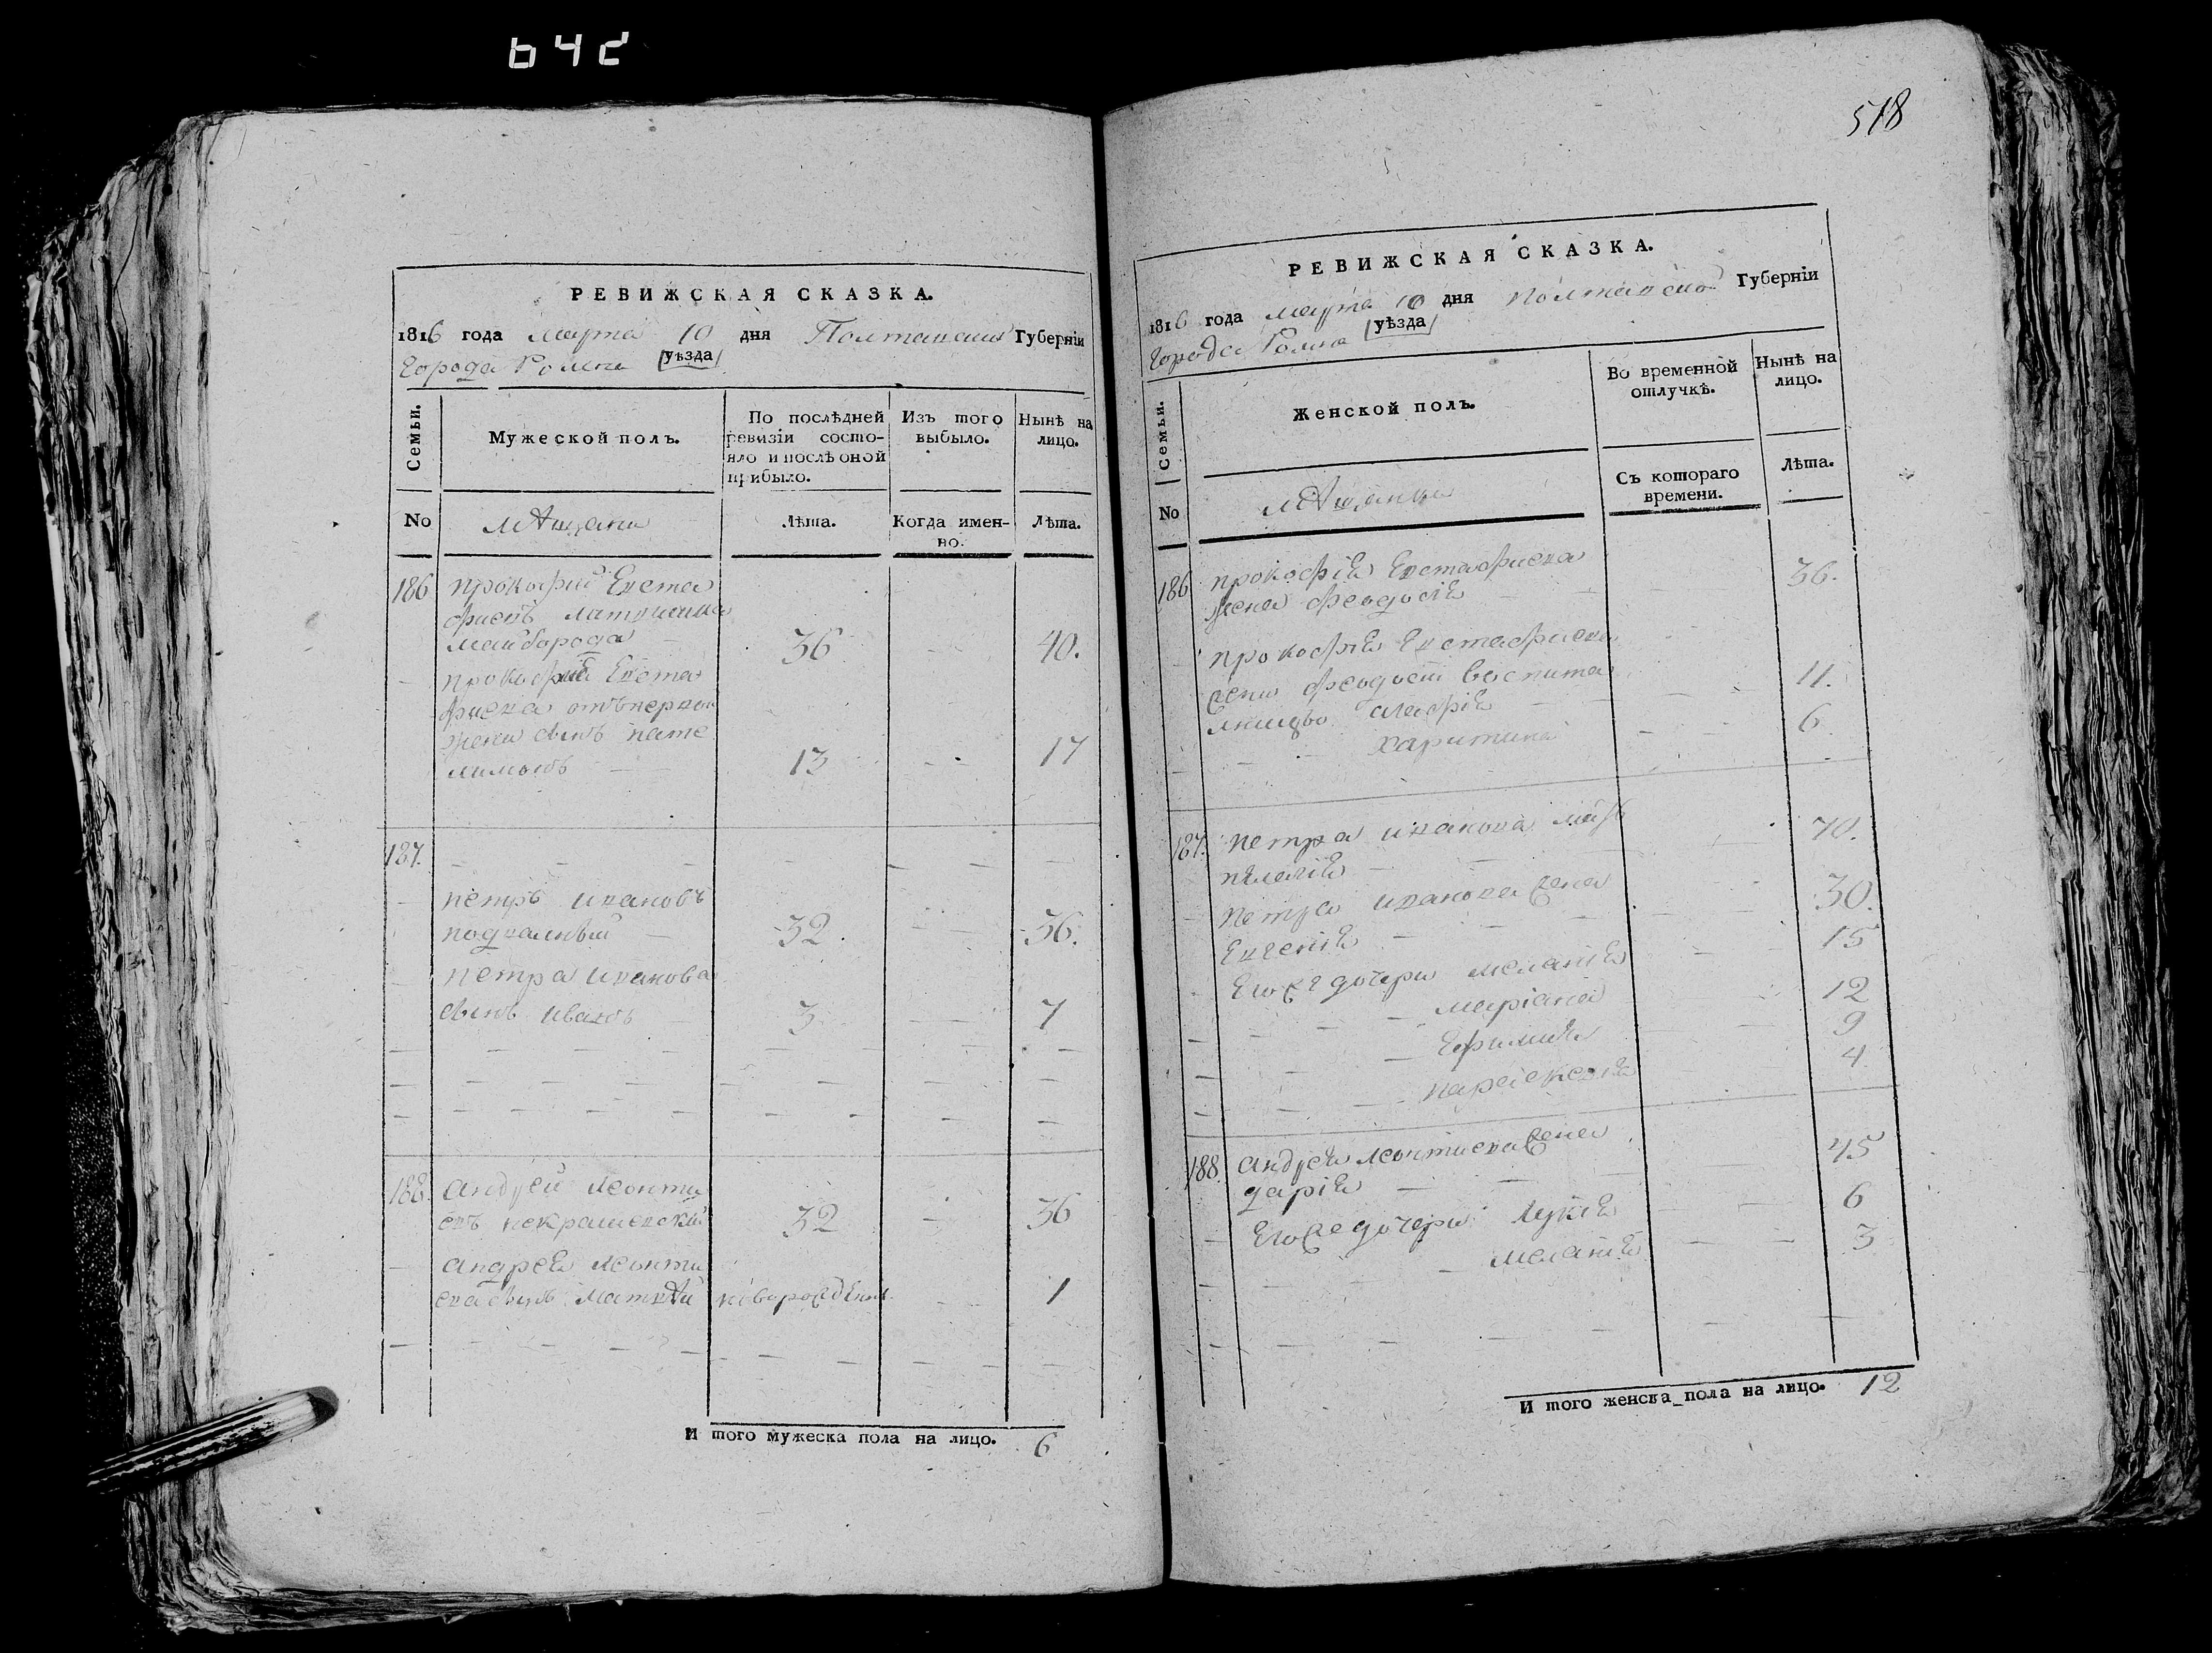 642
РЕВИЖСКАЯ СКАЗКА.
1816 года марта 10 дня Полтавской Губерніи
Города Ромна уѣзда
Семьи.
Мужеской полъ.
По послѣдней ревизіи состо-
яло и послѣ оной прибыло.
Изъ того выбыло.
Нынѣ на лицо.
No
мѣщани
Лѣта.
Когда имен-
но.
Лѣта.
186 прокофий Евста
фиевъ
майборода 36 40.
прокофия Евста
фиева отъ первой
жены сынъ пате
лимонъ 13 17
187.
петръ ивановъ
подвалный 32. 36.
петра иванова
сынъ иванъ 3 7
188. андрей леонти
евъ некрашевский 32 36
андрея леонти
ева сынъ матвѣй новорожденъ 1
И того мужеска пола на лицо. 6
518
РЕВИЖСКАЯ СКАЗКА.
1816 года марта 10 дня полтавской Губерніи
Города Ромна уѣзда
Семьи.
Женской полъ.
Во временной отлучкѣ.
Нынѣ на лицо.
No
мѣщанки
Съ котораго времени.
Лѣта.
186 прокофія Евстафиева
жена феодосія 36.
прокофія Евстафиева
жены феодосіи воспита
11.
харитина 6
187. петра иванова мать
пелагія 70.
петра иванова жена
Евгенія 30.
Егоже дочери меланія 15
маріана 12
Ефимия 9
параскевия 4
188. андрея леонтиева жена
дарія 45
Егоже дочери лукія 6
меланія 3
И того женска пола на лицо. 12